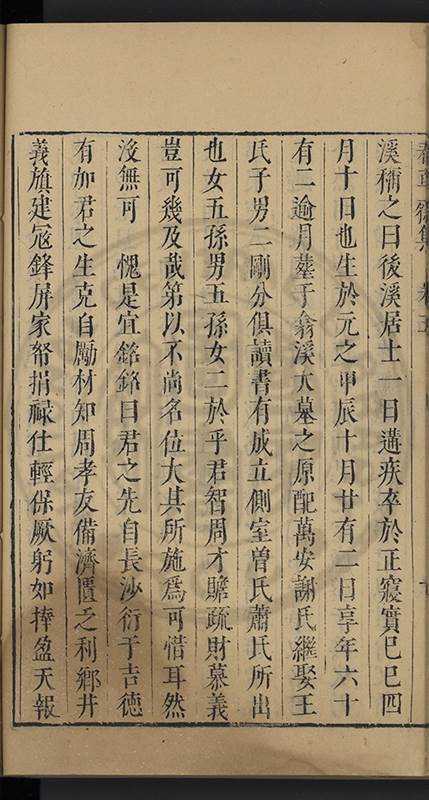 溪稱之曰後溪居士一日遘疾卒於正寢實己巳四
月十日也生於元之甲辰十月廿有二日享年六十
有二逾月塟于翁溪大墓之原配萬安謝氏繼娶王
氏子男二剛分俱讀書有成立側室曽氏蕭氏所出
也女五孫男五孫女二於乎君智周才贍疏財慕義
豈可幾及㢤第以不尚名位大其所施為可惜耳然
沒無可 愧是宜銘銘曰君之先自長沙衍于吉德
有加君之生克自勵材知周孝友備濟匱乏利鄉井
義旗建冦鋒屏家帑捐祿仕輕保厥躬如捧盈天報